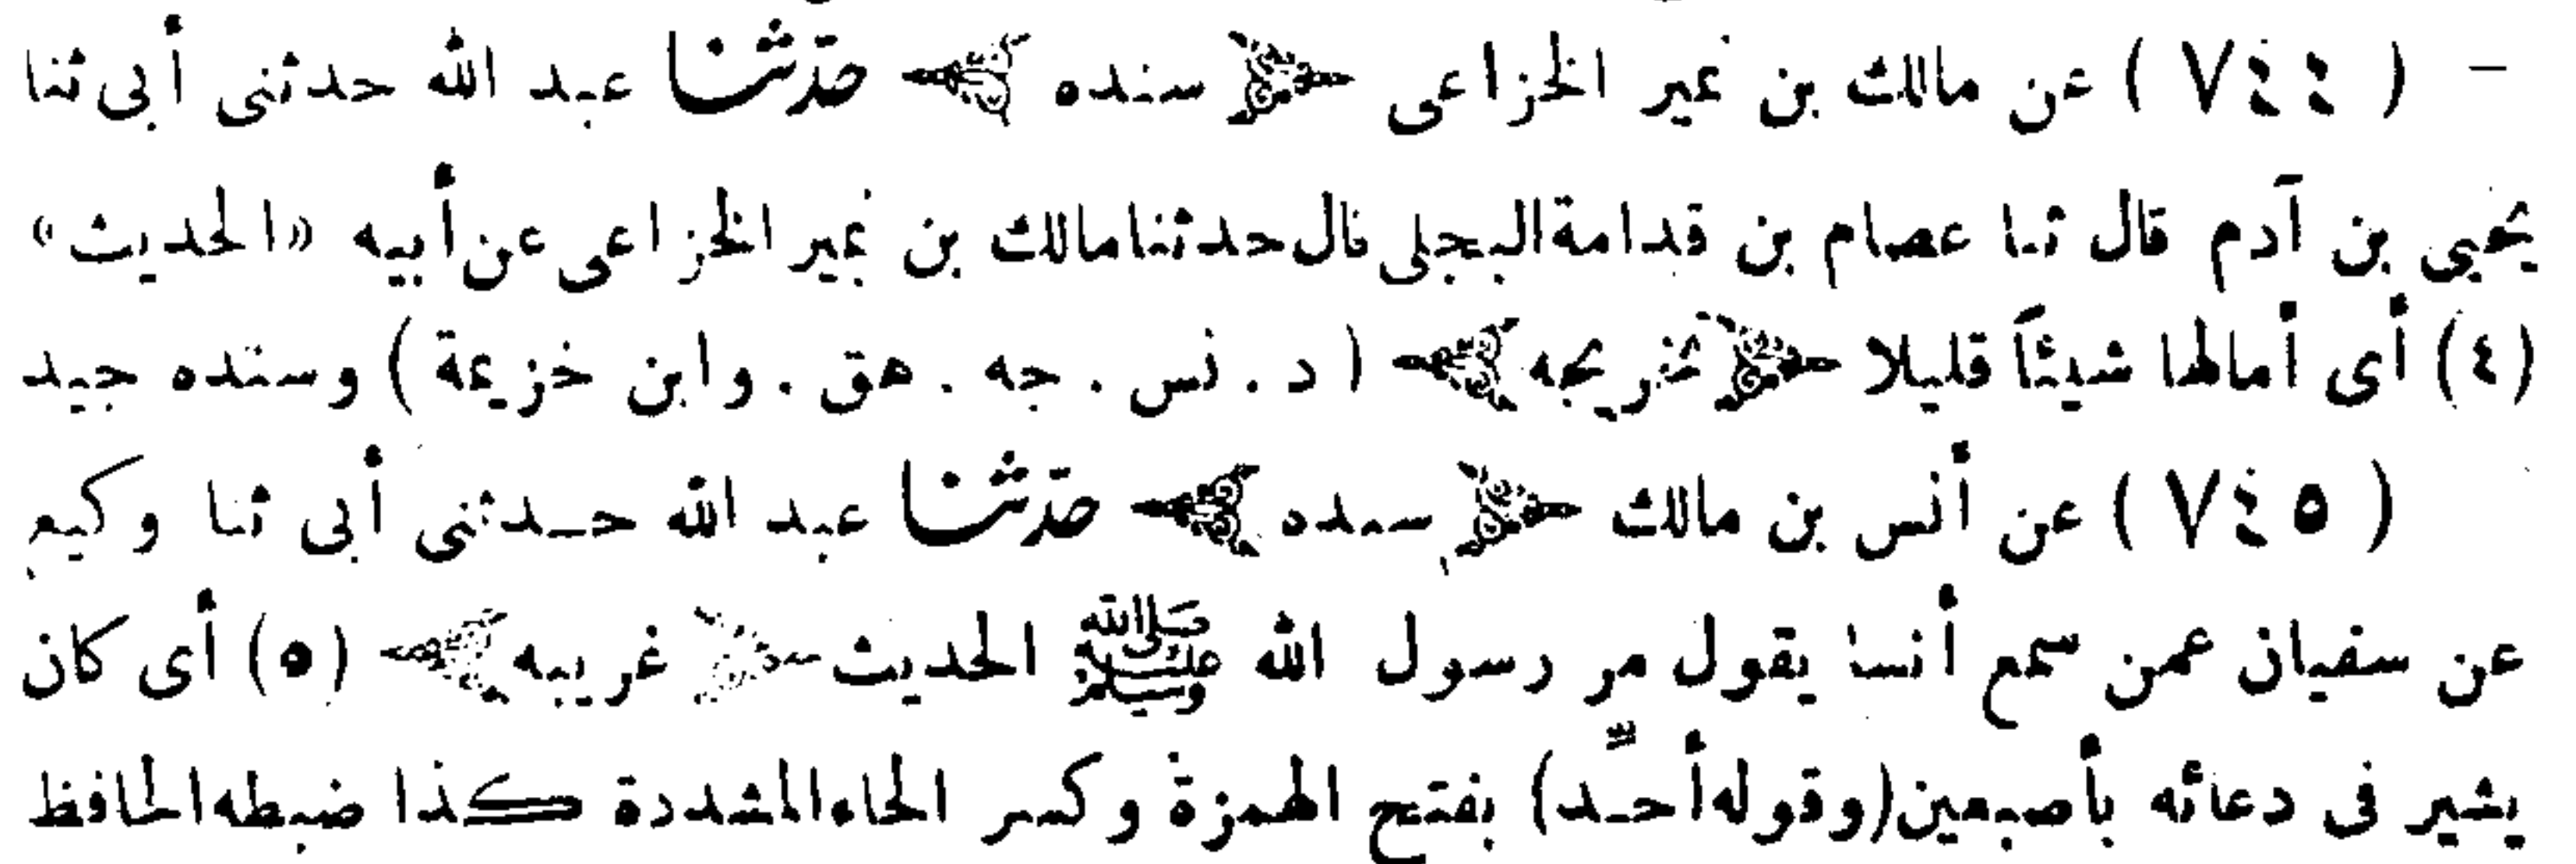 – ( ٧٤٤ ) عن مالك بن نمير الخزاعى ﴿ سنده ﴾ حدّثنا عبد الله حدثنى أبى ثنا
يحيى بن آدم قال ثنا عصام بن قدامة البجلى قال حدثنا مالك بن نمير الخزاعى عن أبيه «الحديث»
(٤) أى أمالها شيئاً قليلا ﴿ تخريجه ﴾ ( د . نس . جه . هق . وابن خزيمة ) وسنده جيد
( ٧٤٥ ) عن أنس بن مالك ﴿ سنده ﴾ حدّثنا عبد الله حدثنى أبى ثنا وكيع
عن سفيان عمن سمع أنسا يقول مر رسول الله ﷺ الحديث ﴿ غريبه ﴾ (٥) أى كان
يشير فى دعائه بأصبعين (وقوله أحِّد) بفتح الهمزة وكسر الحاء المشددة كذا ضبطه الحافظ